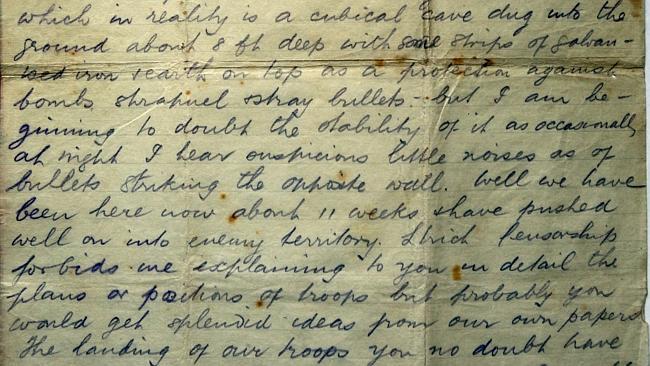 which in reality is a cubical cave dug into the
ground about 8 ft deep with some strips of galvan-
ised iron & earth on top as a protection against
bombs shrapnel & stray bullets - but I am be-
ginning to doubt the stability of it as occasionally
at night I hear suspicious little noises as of
bullets striking the opposite wall. Well we have
been here now about 11 weeks & have pushed
well on into enemy territory. Strict Censorship
forbids me explaining to you in detail the
plans or positions of troops but probably you
would get splendid ideas from our own papers
The landing of our troops you no doubt have